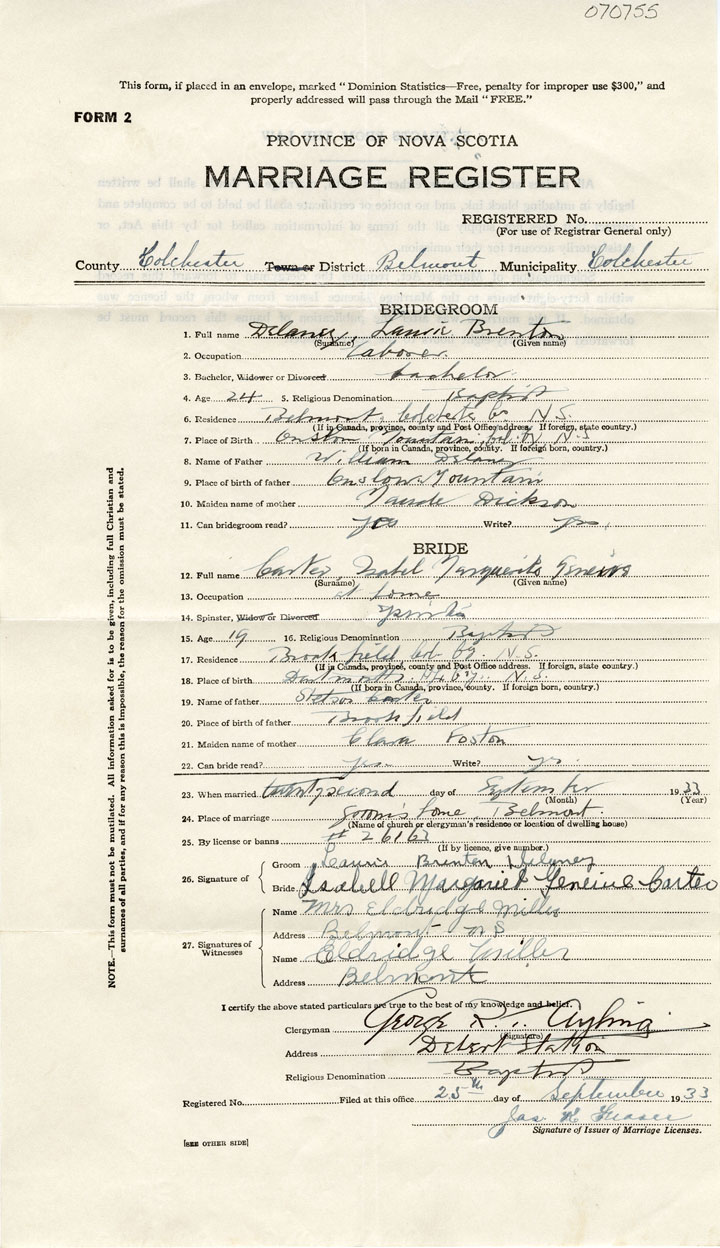 070755
This form, if placed in an envelope, marked "Dominion Statistics—Free, penalty for improper use $300," and
properly addressed will pass through the Mail "FREE."
FORM 2
PROVINCE OF NOVA SCOTIA
MARRIAGE REGISTER
REGISTERED No.
(For use of Registrar General only)
County Colchester Town or District Belmont Municipality Colchester
BRIDEGROOM
1. Full name Delaney, Laurie Brenton
(Surname) (Given name)
2. Occupation Laborer
3. Bachelor, Widower or Divorced bachelor
4. Age 24 5. Religious Denomination Baptist
6. Residence Belmont, Colchester Co N.S.
(If in Canada, province, county and Post Office address. If foreign, state country.)
7. Place of Birth Onslow Mountain, Col. Co N.S
(If born in Canada, province, county. If foreign born, country.)
8. Name of Father William Delaney
9. Place of birth of father Onslow Mountain
10. Maiden name of mother Maude Dickson
11. Can bridegroom read? yes Write? yes
BRIDE
12. Full name Carter, Isabel Marguerite
(Surname) (Given name)
13. Occupation at home
14. Spinster, Widow or Divorced Spinster
15. Age 19 16. Religious Denomination Baptist
17. Residence Brookfield Col. Co. N.S.
(If in Canada, province, county and Post Office address. If foreign, state country.)
18. Place of birth Dartmouth, N.S.
(If born in Canada, province, county. If foreign born, country.)
19. Name of father Stetson Carter
20. Place of birth of father Brookfield
21. Maiden name of mother Clara
22. Can bride read? yes Write? yes
23. When married twenty second day of September 1933
(Month) (Year)
24. Place of marriage groom's home, Belmont
(Name of church or clergyman's residence or location of dwelling house)
25. By license or banns # 26163
(If by licence, give number.)
26. Signature of
Groom Laurie Brenton Delaney
Bride Isabell Margariet Geneive Carter
27. Signatures of Witnesses
Name Mrs Eldridge Miller
Address Belmont NS
Name Eldridge Miller
Address Belmont
I certify the above stated particulars are true to the best of my knowledge and belief.
Clergyman George
(Signature)
Address Debert Station
Religious Denomination Baptist
Registered No. Filed at this office 25th day of September 1933
Jas Fraser
Signature of Issuer of Marriage Licenses.
[SEE OTHER SIDE]
NOTE.—This form must not be mutilated. All information asked for is to be given, including full Christian and
surnames of all parties, and if for any reason this is impossible, the reason for the omission must be stated.